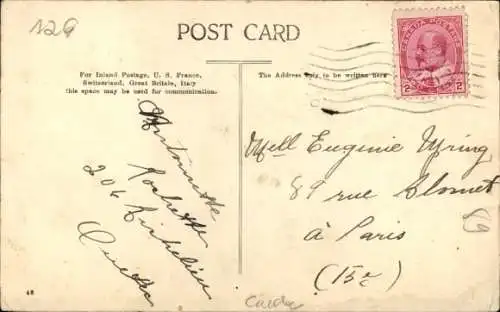 129
POST CARD
CANADA POSTAGE
2 2
For Inland Postage, U. S. France,
Switzerland, Great Britain, Italy
this space may be used for communication.
The Address only to be written here
Antoinette
Rochette
206 Richelieu
Québec
Mell Eugenie
89 rue Blomet
à Paris
(15e)
89
48